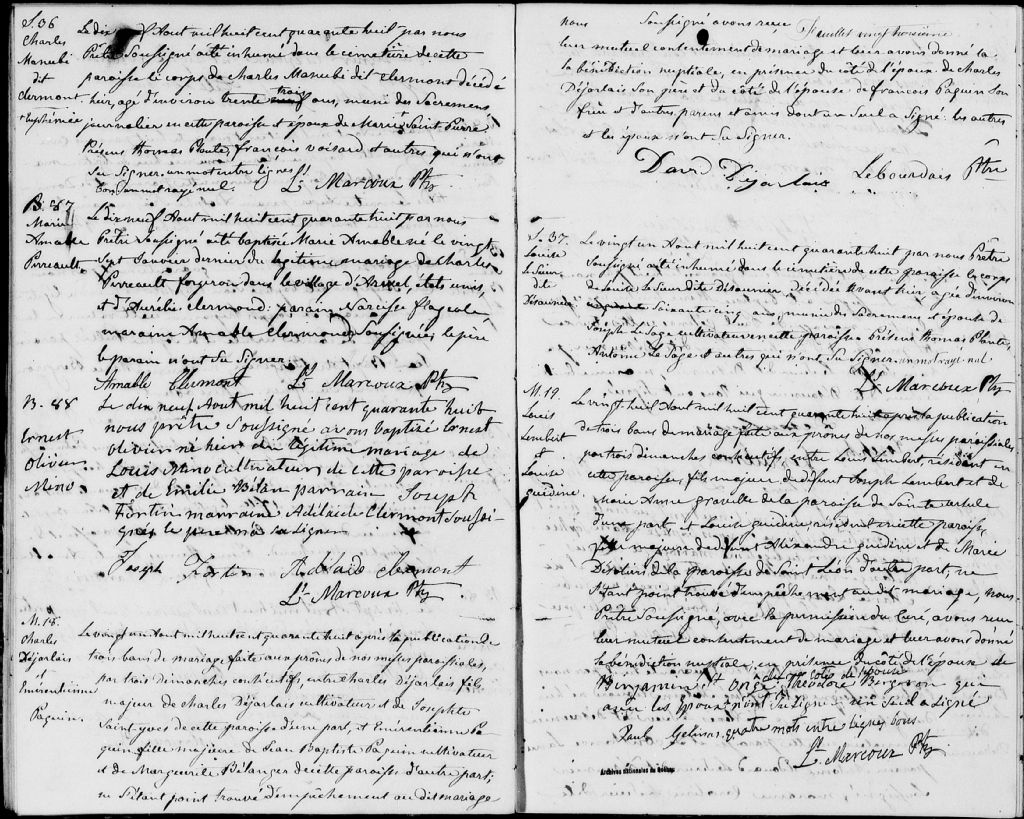 S. 36
Charles
Manubi
dit
Clermont
+ Euphémie
Le dix Aout mil huit cent quarante huit par nous
Prêtre Soussigné a été inhumé dans le cemetière de cette
paroisse le corps de Charles Manubi dit Clermont décédé
hier, agé d'environ trente trois ans, muni des Sacremens
journalier en cette paroisse et époux de Marie + Saint Pierre
Présens thomas Plante, françois Voisard, et autres qui n'ont
Su Signer. un mot entre lignes
bon, un mot rayé nul. Ls Marcoux Ptre
B. 87
Marie
Amable
Perreault
Le dix neuf Aout mil huit cent quarante huit par nous
Prêtre Soussigné a été baptisée Marie Amable né le vingt
Sept Janvier dernier du légitime mariage de Charles
Perreault forgeron dans le village d' états unis,
et d'Aurélie Clermond: parain Narcisse
maraine Amable Clermond Soussignés le père
le parain n'ont Su Signer
Amable Clermont Ls Marcoux Ptre
B. 88
Ernest
Olivier
Mino
Le dix neuf Aout mil huit cent quarante huit
nous prêtre Soussigné avons baptizé Ernest
Olivier né hier du légitime mariage de
Louis Mino Cultivateur de cette paroisse
et de Emilie Bélan parrain Joseph
Fortin marraine Adélaide Clermont Soussi-
gnés le pere n'a sû signer
Joseph Fortin Adélaide Clermont
Ls Marcoux Ptre
M. 18.
Charles
Déjarlais
&
Emérentienne
Paquin.
Le vingt un Aout mil huit cent quarante huit après la publication de
trois bans de mariage faite aux prônes de nos messes paroissiales,
par trois dimanches continutifs, entre Charles Déjarlais fils
majeur de Charles Déjarlais cultivateur et de Josephte
Saint yves de cette paroisse d'une part, et Emérentienne Pa-
quin fille majeure de Jean Baptiste Paquin cultivateur
et de Marguerite Bélanger de cette paroisse d'autre part;
ne S'étant point trouvé d'empêchement au dit mariage
nous Soussigné avons reçu Feuillet vingt troisième
leur mutuel contentement de mariage et leur avons donné la
la bénédiction nuptiale, en présence du côté de l'époux de Charles
Déjarlais Son père et du côté de l'épouse de francois Paquin Son
frère et d'autres parens et amis dont un Seul a Signé. les autres
et les époux n'ont Su Signer.
David Déjarlais Lebourdais Ptre
S. 37.
Louise
Le Sieur
dite
Désaunier
Le vingt un Aout mil huit cent quarante huit par nous Prêtre
Soussigné a été inhumé dans le cimetière de cette paroisse le corps
de Louise Le Sieur dite Désaunier, décédée Avant hier, agée d'environ
Soixante cinq ans, munie des Sacremens et épouse de
Joseph Le Sage cultivateur en cette paroisse. Présens thomas Plante,
Antoine Le Sage et autres qui n'ont Su Signer. un mot rayé nul
Ls Marcoux Ptre
M. 19.
Louis
Lembert
&
Louise
guidine
Le vingt huit Aout mil huit cent quarante huit après la publication
de trois bans de mariage faite aux prônes de nos messes paroissiales
par trois dimanches continutifs, entre Louis Lembert, résidant en
cette paroisse, fils majeur de défunt Joseph Lambert et de
Marie Anne graville de la paroisse de Sainte ursule
d'une part, et Louise guidine résidant en cette paroisse,
fille majeure de défunt Alexandre guidine et de Marie
de la paroisse de Saint Léon d'autre part; ne
S'étant point trouvé d'empêchement au dit mariage, nous
Prêtre Soussigné, avec la permission du Curé, avons reçu
leur mutuel contentement de mariage et leur avons donné
la bénédiction nuptiale; en présence du côté de l'époux de
Benjamin St Onge Théodore Bergeron qui
du côté de l'épouse
ainsi les époux n'ont Su Signé. un Seul a Signé
Paul Gelinas. quatre mots entre lignes bons.
Ls Marcoux Ptre
Archives nationales du Québec